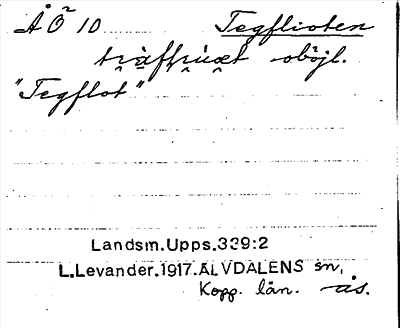 ÅÖ 10 Tegflioten
träffrúət obőjl.
"Tegflot"
Landsm.Upps.339:2
L.Levander.1917.ÄLVDALENS sn,
Kopp. län. ås.